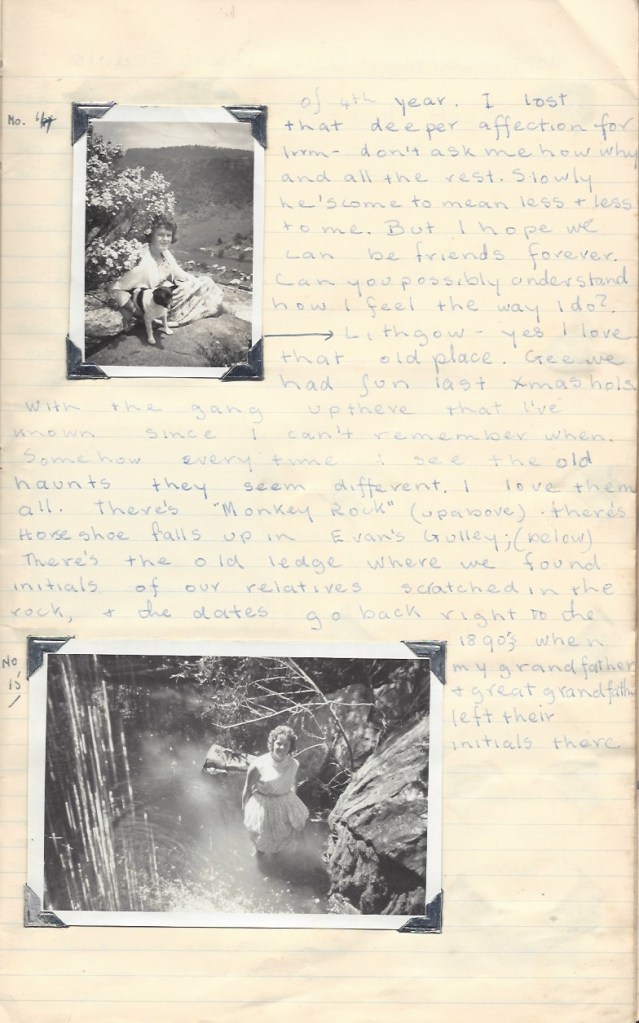 of 4th year. I lost
No. 14
that deeper affection for
him - don't ask me how why
and all the rest. Slowly
he's come to mean less + less
to me. But I hope we
can be friends forever.
Can you possibly understand
how I feel the way I do?
Lithgow - yes I love
that old place. Gee we
had fun last xmas hols
with the gang up there that I've
known since I can't remember when.
Somehow every time I see the old
haunts they seem different. I love them
all. There's "Monkey Rock" (up above) - there's
Horse shoe falls up in Evan's Gulley; (below)
There's the old ledge where we found
initials of our relatives scratched in the
rock, + the dates go back right to the
1890's when
No
15
my grandfather
+ great grandfather
left their
initials there.